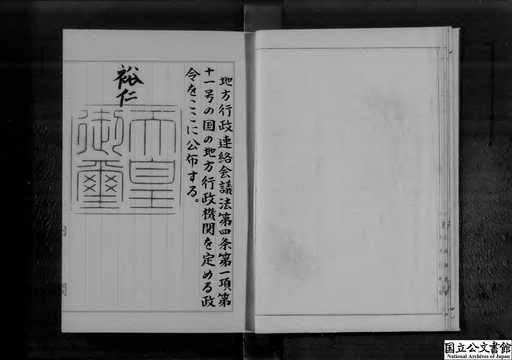 地方行政連絡会議法第四条第一項第
十一号の国の地方行政機関を定める政
令をここに公布する。
裕仁
天皇
御璽
国立公文書館
National Archives of Japan